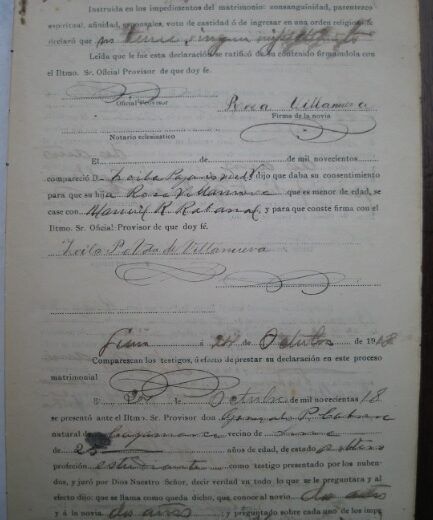 Instruida en los impedimentos del matrimonio: consanguinidad, parentezco
espiritual, afinidad, esponsales, voto de castidad ó de ingresar en una orden religiosa
declaró que no tiene ningun
Leida que le fué esta declaración se ratificó de su contenido firmándola con
el Iltmo. Sr. Oficial Provisor de que doy fe.
Oficial Provisor
Rosa Villanueva
Firma de la novia
Notario eclesiástico
El de de mil novecientos
compareció D. Zoila dijo que daba su consentimiento
para que su hija Rosa Villanueva que es menor de edad, se
case con Manuel R. Rabanal, y para que conste firma con el
Iltmo. Sr. Oficial Provisor de que doy fe.
Zoila P. Vda de Villanueva
Lima á 24 de Octubre de 1918
Comparescan los testigos, á efecto de prestar su declaración en este proceso
matrimonial
El 24 de Octubre de mil novecientos 18
se presentó ante el Iltmo. Sr. Provisor don Gonzalo P.
natural de Cajamarca vecino de Lima
de 25 años de edad, de estado soltero
profeción estudiante como testigo presentado por los nuben-
dos, y juró por Dios Nuestro Señor, decir verdad en todo lo que se le preguntara y al
efecto dijo: que se llama como queda dicho, que conoce al novio dos años
y á la novia dos años y preguntado sobre cada uno de los im-